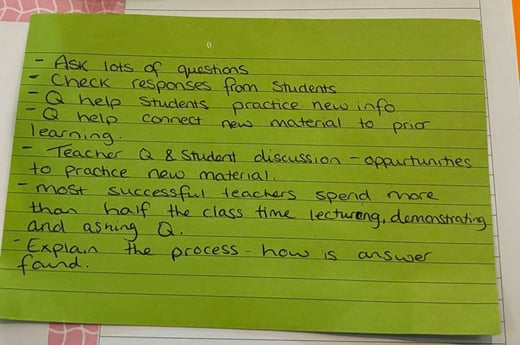 - Ask lots of questions
- Check responses from students
- Q help students practice new info
- Q help connect new material to prior
learning.
- Teacher Q & student discussion - oppurtunities
to practice new material.
- most successful teachers spend more
than half the class time lecturing, demonstrating
and asking Q.
- Explain the process - how is answer
found.